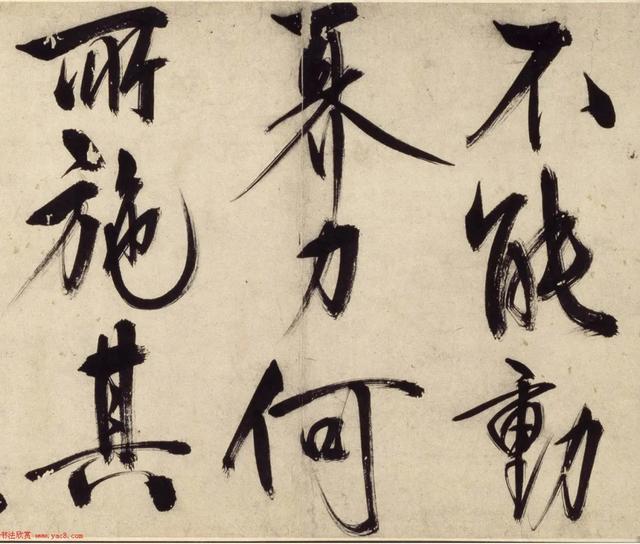 不能動
奡力何
所施其
书法欣赏-www.yac8.com